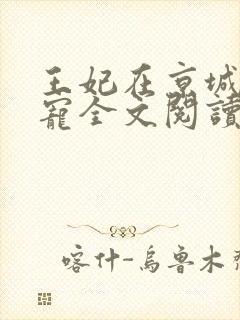 王妃在京城
寵全文閱讀
喀什-烏魯木齊